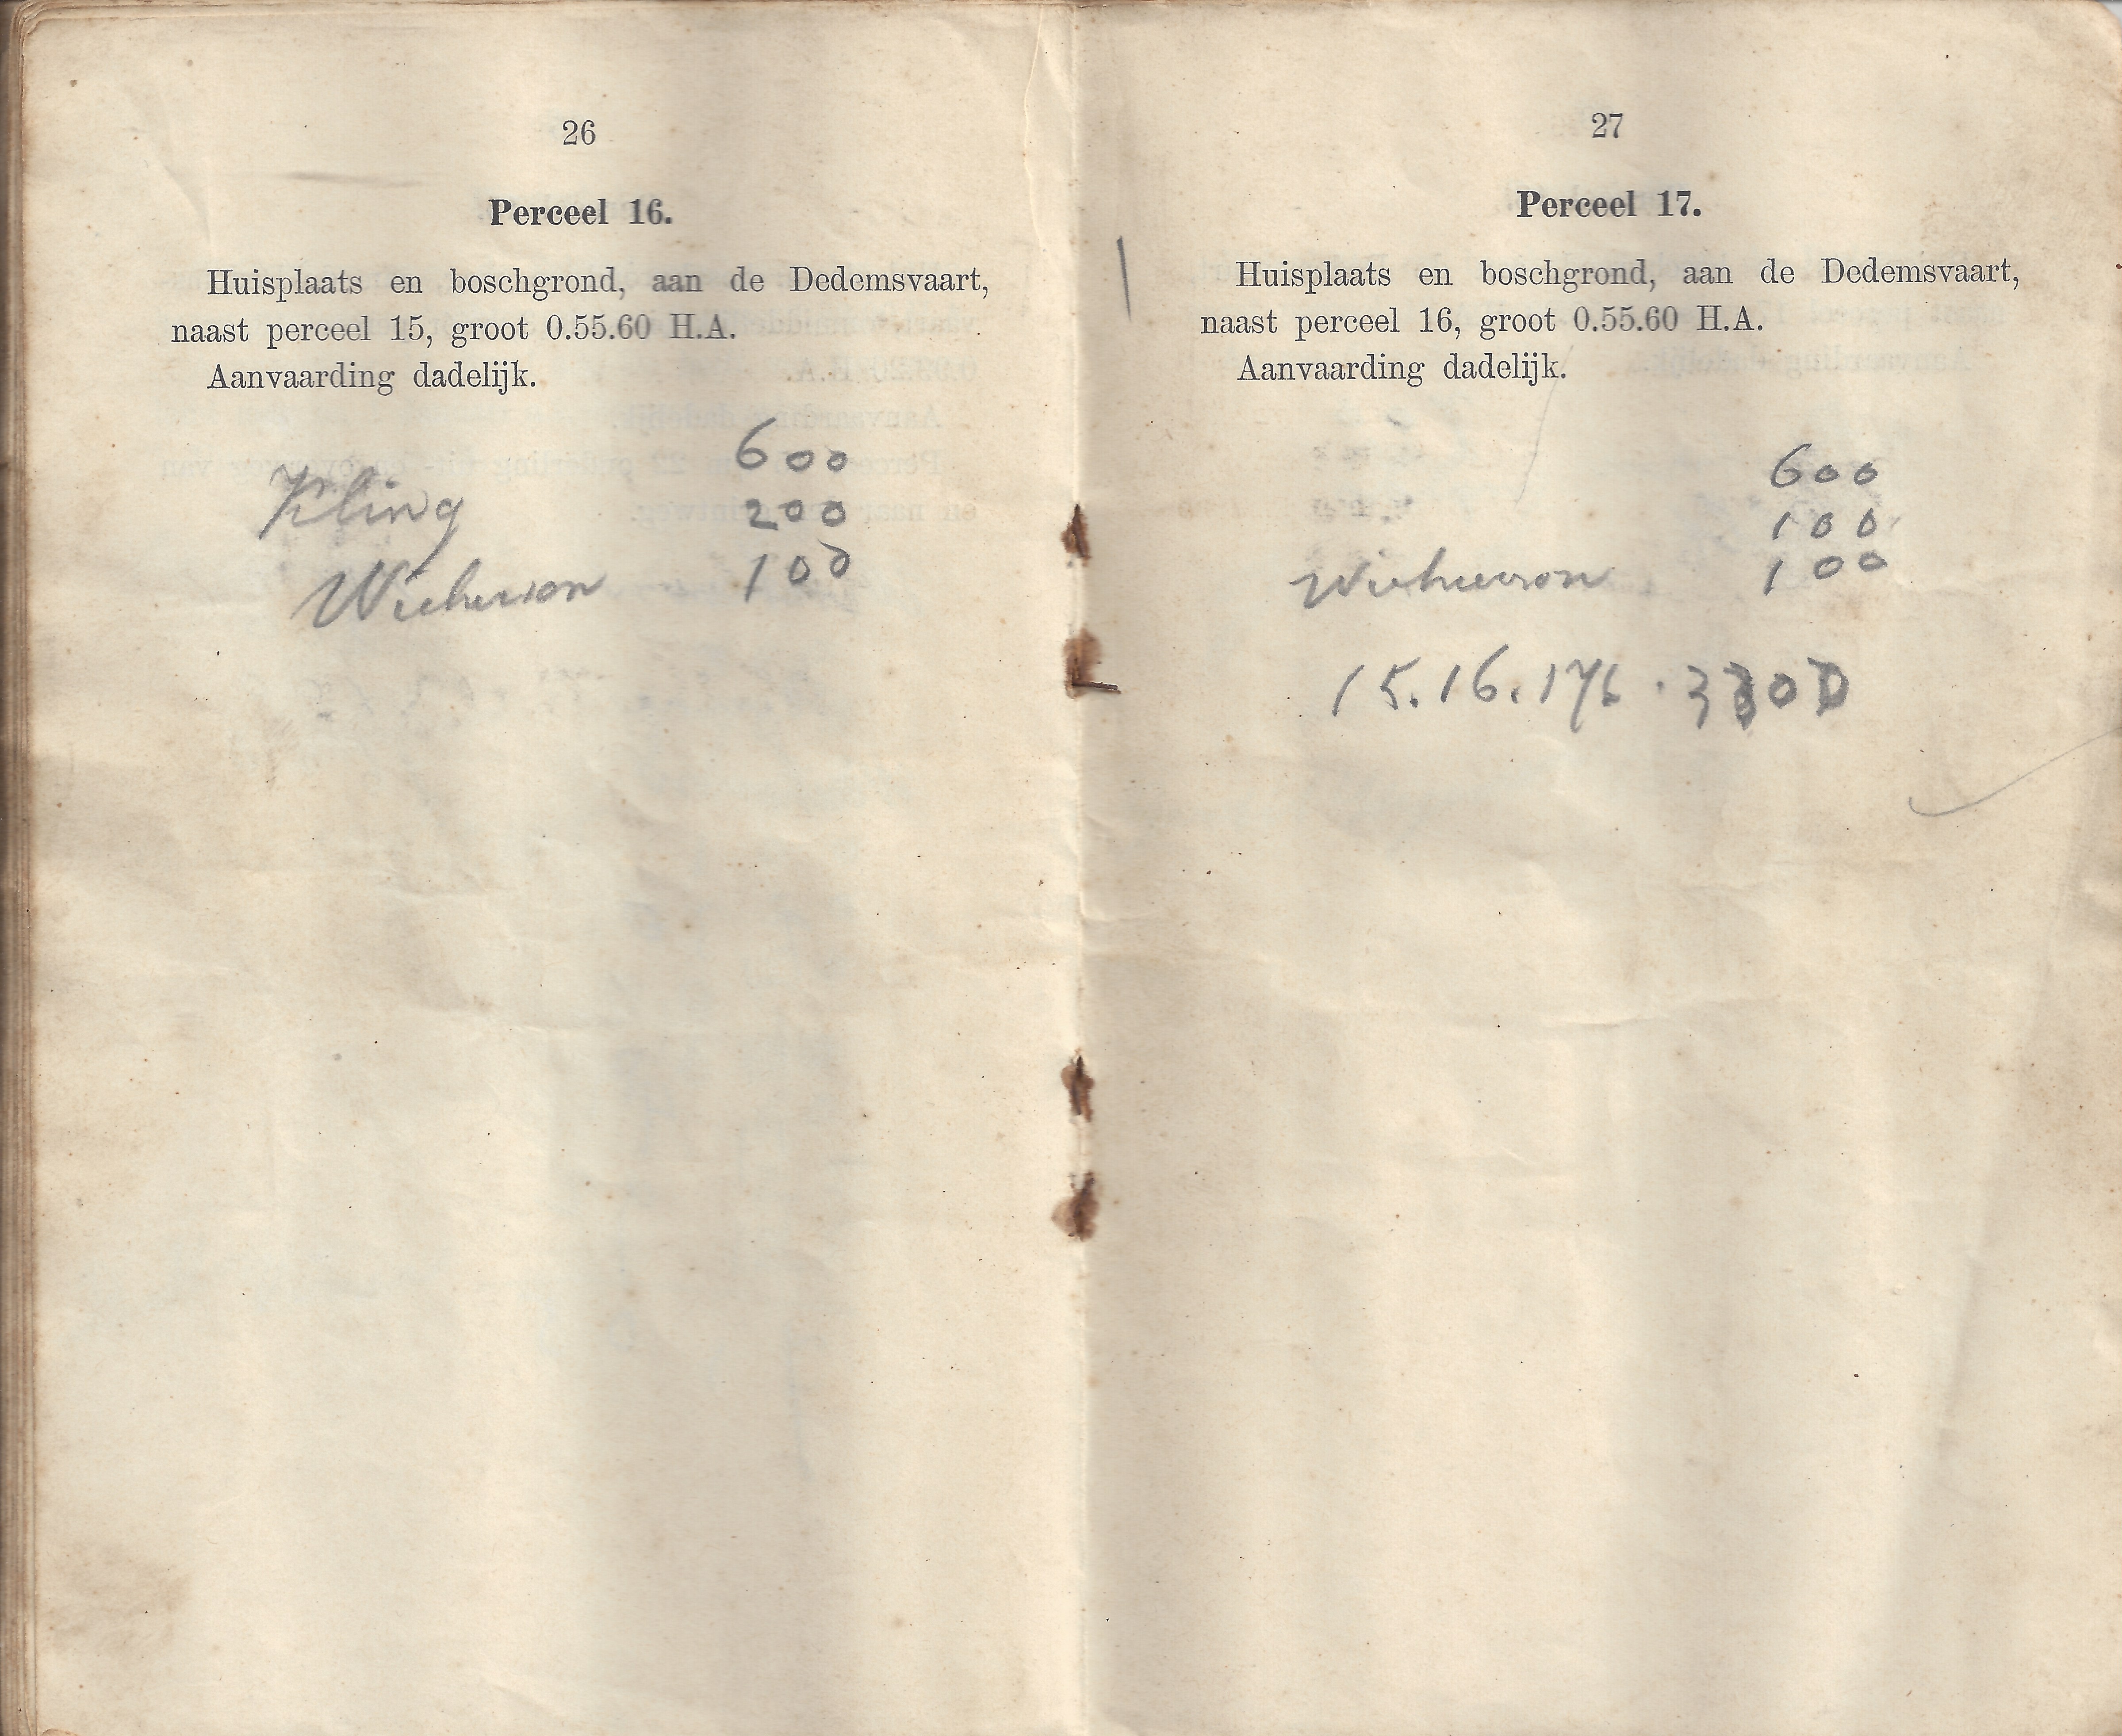 26
Perceel 16.
Huisplaats en boschgrond, aan de Dedemsvaart,
naast perceel 15, groot 0.55.60 H.A.
Aanvaarding dadelijk.
600
Kling 200
100
27
Perceel 17.
Huisplaats en boschgrond, aan de Dedemsvaart,
naast perceel 16, groot 0.55.60 H.A.
Aanvaarding dadelijk.
600
100
100
15.16.17